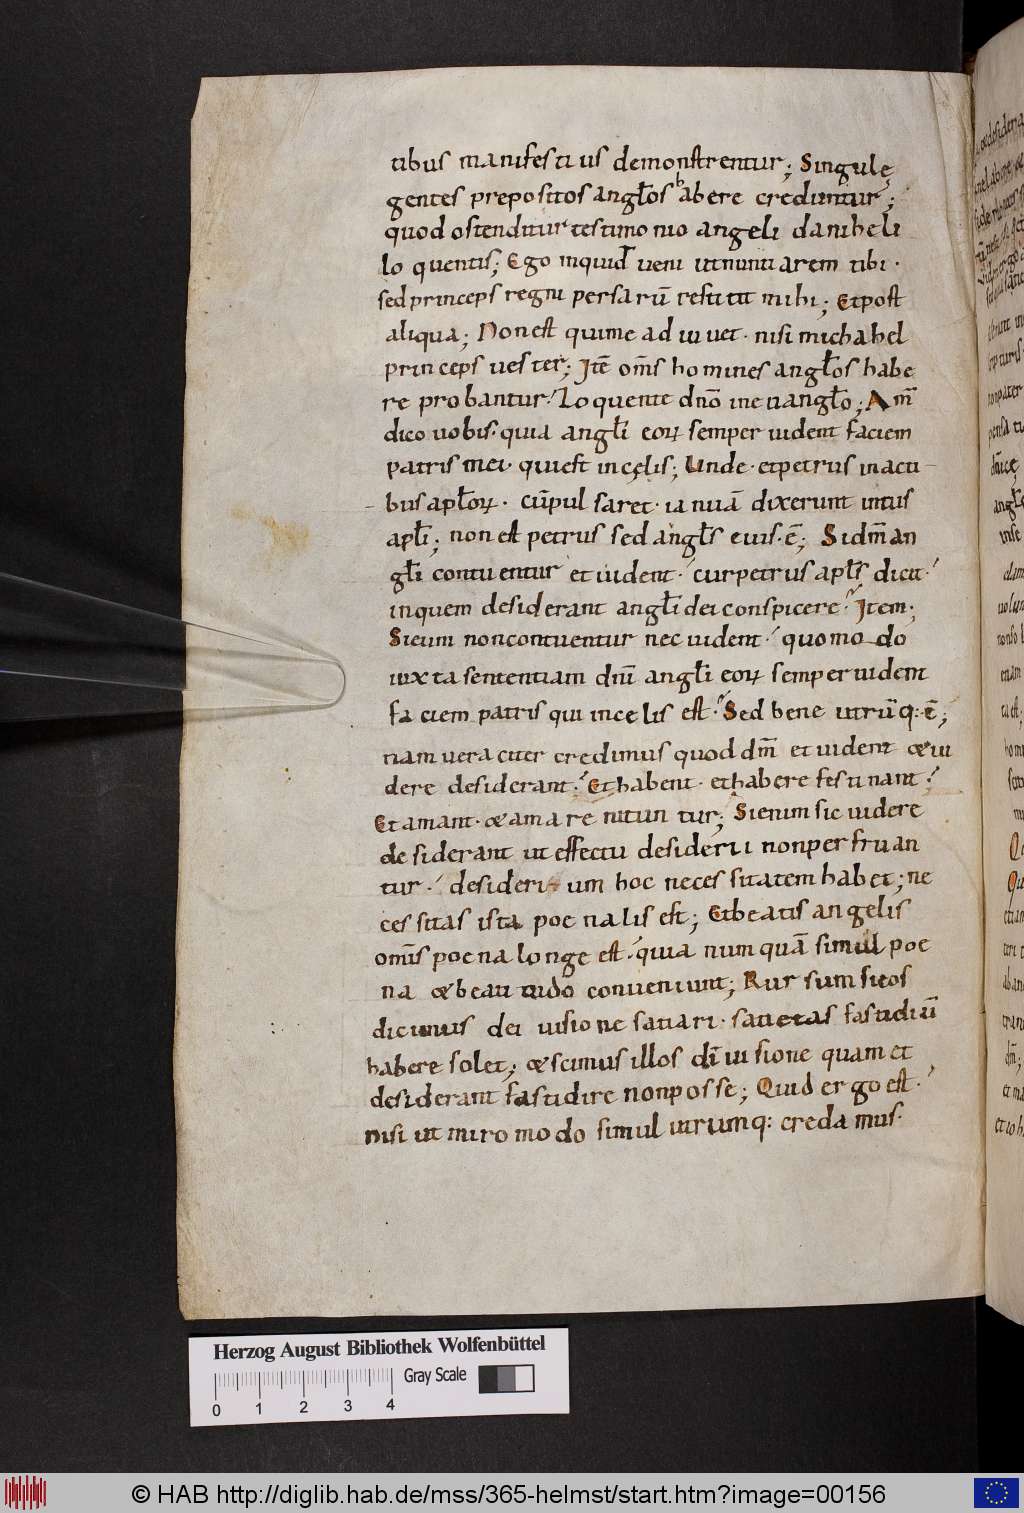 tibus manifestius demonstrentur; Singulę
gentes prepositos angl̄os habere creduntur;
quod ostenditur testimonio angeli daniheli
loquentis; Ego inquid veni ut nuntiarem tibi ·
sed princeps regni persarū restitit mihi; Et post
aliqua; Non est qui me adiuvet · nisi michahel
princeps vester; Itē om̄s homines angl̄os habe
re probantur · Loquente dn̄o in evangl̄o; Am̄
dico vobis · quia angl̄i eoꝝ semper vident faciem
patris mei · qui est in cęlis; Unde · et petrus in acti
bus apl̄oꝝ · cū pulsaret · ianuā dixerunt intus
apl̄i; non est petrus sed angl̄s eius · ē; Si dm̄ an
gl̄i contuentur et vident · cur petrus apl̄s dicit ·
in quem desiderant angl̄i dei conspicere · Item;
Si eum non contuentur nec vident · quomodo
iuxta sententiam dn̄i angl̄i eoꝝ semper vident
faciem patris qui in celis est · Sed bene utrūq: · ē;
nam veraciter credimus quod dm̄ et vident & vi
dere desiderant · Et habent · et habere festinant ·
Et amant · & amare nituntur; Si enim sic videre
desiderant ut effectu desiderii non perfruan
tur · desiderium hoc necessitatem habet; ne
cessitas ista poenalis est; Et beatis angelis
om̄is poena longe est · quia numquā simul poe
na & beatitudo conveniunt; Rursum si eos
dicimus dei visione satiari · satietas fastidiū
habere solet; & scimus illos dī visione quam et
desiderant fastidire non posse; Quid ergo est ·
nisi ut miro modo simul utrumq: credamus ·
Herzog August Bibliothek Wolfenbüttel
Gray Scale
0 1 2 3 4
© HAB http://diglib.hab.de/mss/365-helmst/start.htm?image=00156